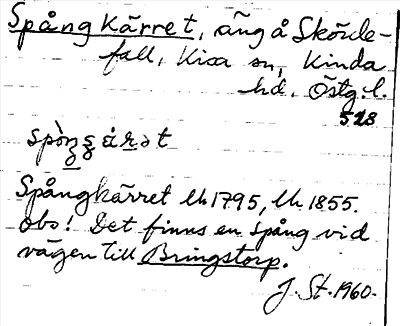 Spångkärret, äng å Skörde-
fall, Kisa sn, Kinda
hd. Östg. l.
528
Spångkärret lh 1795, lh 1855.
Obs! Det finns en spång vid
vägen till Bringstorp.
J. St. 1960.